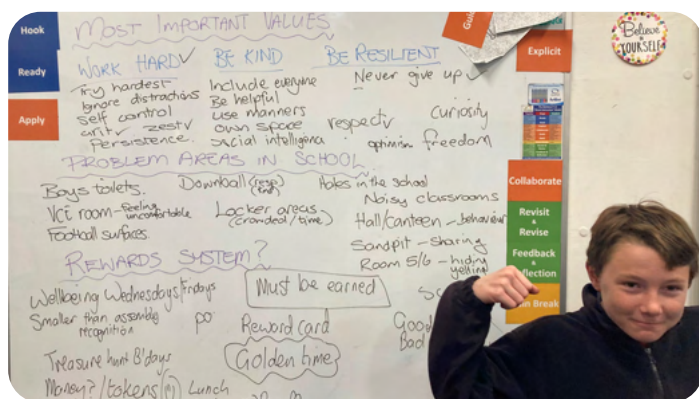 Hook
Ready
Apply
MOST IMPORTANT VALUES
WORK HARD
Try hardest
Ignore distractions
Self control
grit zest
Persistence.
BE KIND
Include everyone
Be helpful
use manners
own space
social intelligence
BE RESILIENT
Never give up
respect
curiosity
optimism freedom
PROBLEM AREAS IN SCHOOL
Boys toilets.
VCE room - feeling uncomfortable
Football surfaces
Downball
Locker areas
(crowded/time)
Holes in the school
Noisy classrooms
Hall/canteen - behaviour
Sandpit - sharing
Room 5/6 - hiding
yelling
REWARDS SYSTEM?
Wellbeing Wednesdays/Fridays
Smaller than assembly
recognition
Treasure hunt B'days
Money?/tokens Lunch
Must be earned
po
Reward card
Golden time
Sc
Good
Bad
Explicit
Collaborate
Revisit
&
Revise
Feedback
&
flection
in Break
Believe
in
YOURSELF